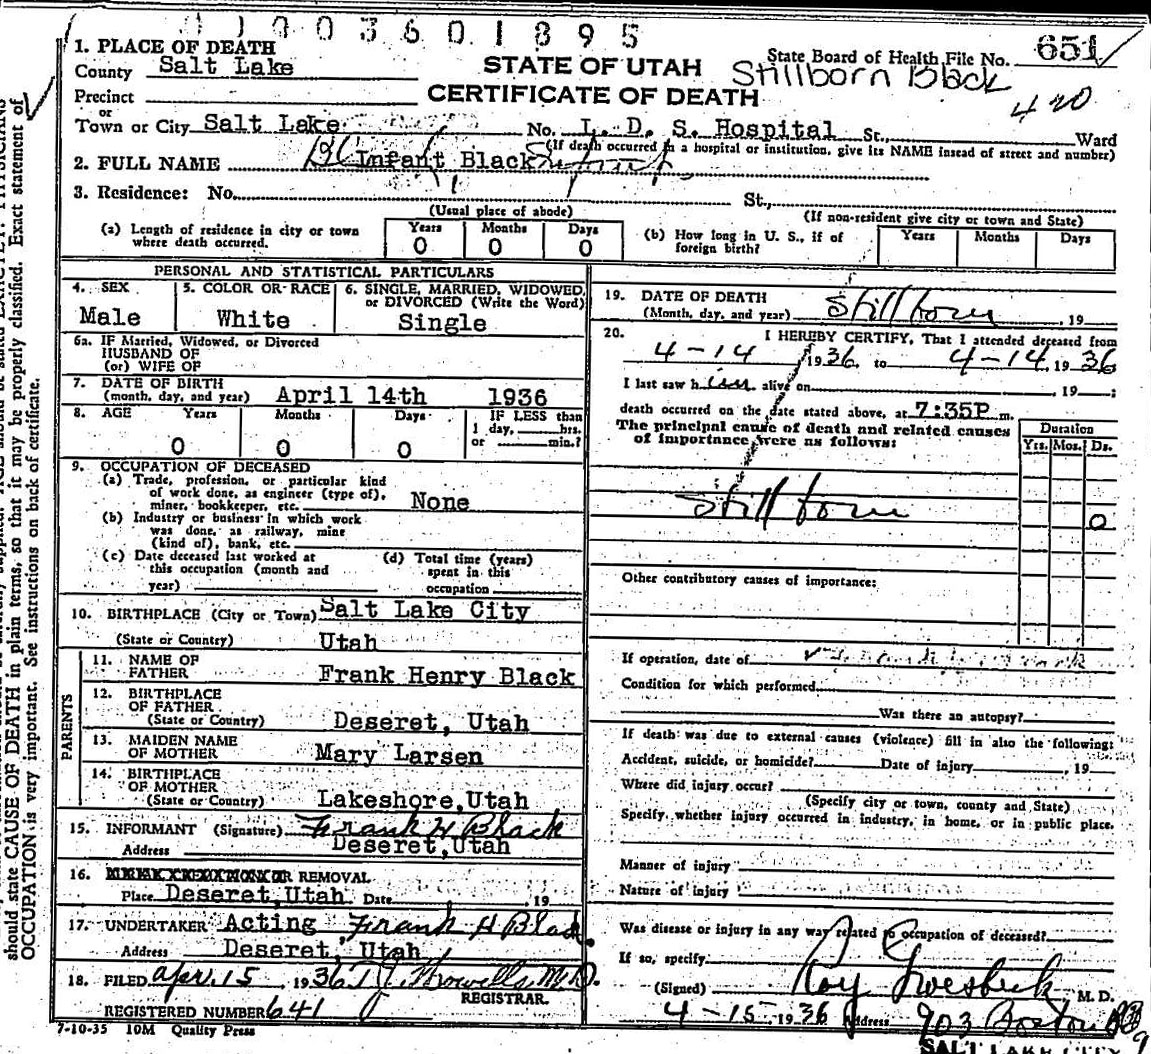 01003601895
1. PLACE OF DEATH
County Salt Lake
STATE OF UTAH
State Board of Health File No. 651
Stillborn Black
Precinct
CERTIFICATE OF DEATH
420
or
Town or City Salt Lake No. L. D. S. Hospital St., Ward
(If death occurred in a hospital or institution, give its NAME insead of street and number)
2. FULL NAME Infant Black
3. Residence: No. St.,
(Usual place of abode) (If non-resident give city or town and State)
(a) Length of residence in city or town where death occurred. Years Months Days
0 0 0
(b) How long in U. S., if of foreign birth? Years Months Days
PERSONAL AND STATISTICAL PARTICULARS
4. SEX 5. COLOR OR RACE 6. SINGLE, MARRIED, WIDOWED, or DIVORCED (Write the Word)
Male White Single
6a. IF Married, Widowed, or Divorced
HUSBAND OF
(or) WIFE OF
7. DATE OF BIRTH
(month, day, and year) April 14th 1936
8. AGE Years Months Days IF LESS than
1 day, hrs.
or min.?
0 0 0
9. OCCUPATION OF DECEASED
(a) Trade, profession, or particular kind
of work done, as engineer (type of),
miner, bookkeeper, etc. None
(b) Industry or business in which work
was done, as railway, mine
(kind of), bank, etc.
(c) Date deceased last worked at
this occupation (month and
year)
(d) Total time (years)
spent in this
occupation
10. BIRTHPLACE (City or Town) Salt Lake City
(State or Country) Utah
PARENTS
11. NAME OF
FATHER Frank Henry Black
12. BIRTHPLACE
OF FATHER
(State or Country) Deseret, Utah
13. MAIDEN NAME
OF MOTHER Mary Larsen
14. BIRTHPLACE
OF MOTHER
(State or Country) Lakeshore, Utah
15. INFORMANT (Signature) Frank H Black
Address Deseret, Utah
16. OR REMOVAL
Place Deseret, Utah Date , 19
17. UNDERTAKER Acting Frank H Black.
Address Deseret, Utah
18. FILED Apr. 15 1936 Howells M.D.
REGISTRAR.
REGISTERED NUMBER 641
7-10-35 10M Quality Press
19. DATE OF DEATH
(Month, day, and year) Stillborn , 19
20. I HEREBY CERTIFY, That I attended deceased from
4-14 1936, to 4-14, 1936
I last saw him alive on , 19 ;
death occurred on the date stated above, at 7:35P m.
The principal cause of death and related causes
of importance were as follows:
Duration
Yrs. Mos. Ds.
Stillborn 0
Other contributory causes of importance:
If operation, date of
Condition for which performed
Was there an autopsy?
If death was due to external causes (violence) fill in also the following:
Accident, suicide, or homicide? Date of injury , 19
Where did injury occur?
(Specify city or town, county and State)
Specify whether injury occurred in industry, in home, or in public place.
Manner of injury
Nature of injury
Was disease or injury in any way related to occupation of deceased?
If so, specify
(Signed) Roy Groesbeck M. D.
4-15-1936 Address 903 Boston B
SALT LAKE CITY
should state CAUSE OF DEATH in plain terms, so that it may be properly classified. Exact statement of
OCCUPATION is very important. See instructions on back of certificate.